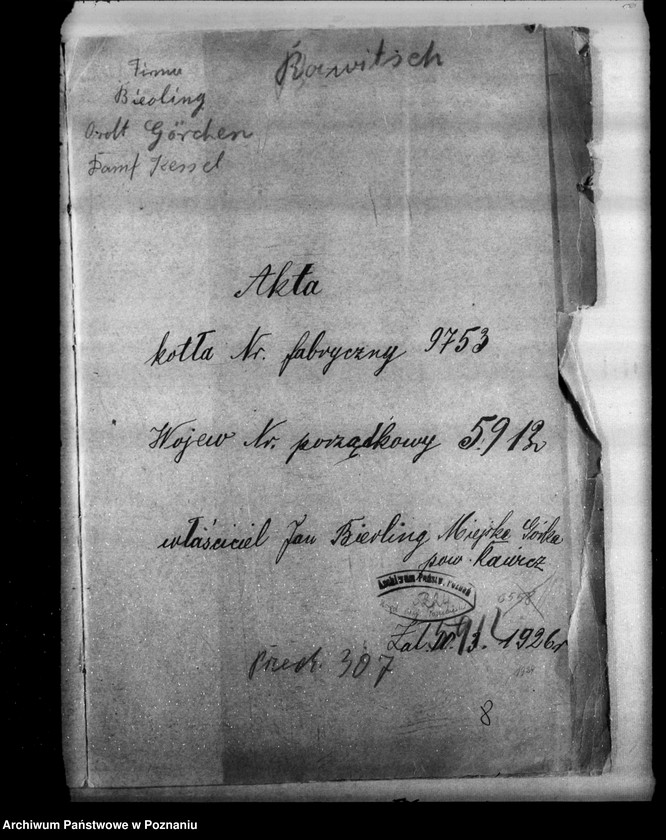 Rawitsch
Firma
Bieoling
Ordt Görchen
Damf Kessel
Akta
kotła Nr. fabryczny 9753
Wojew Nr. porządkowy 5912
właściciel Jan Bierling Miejska Górka
pow. Rawicz
Archiwum Państw. Poznań
Zał. 1926r
Przech. 307
8
Archiwum Państwowe w Poznaniu